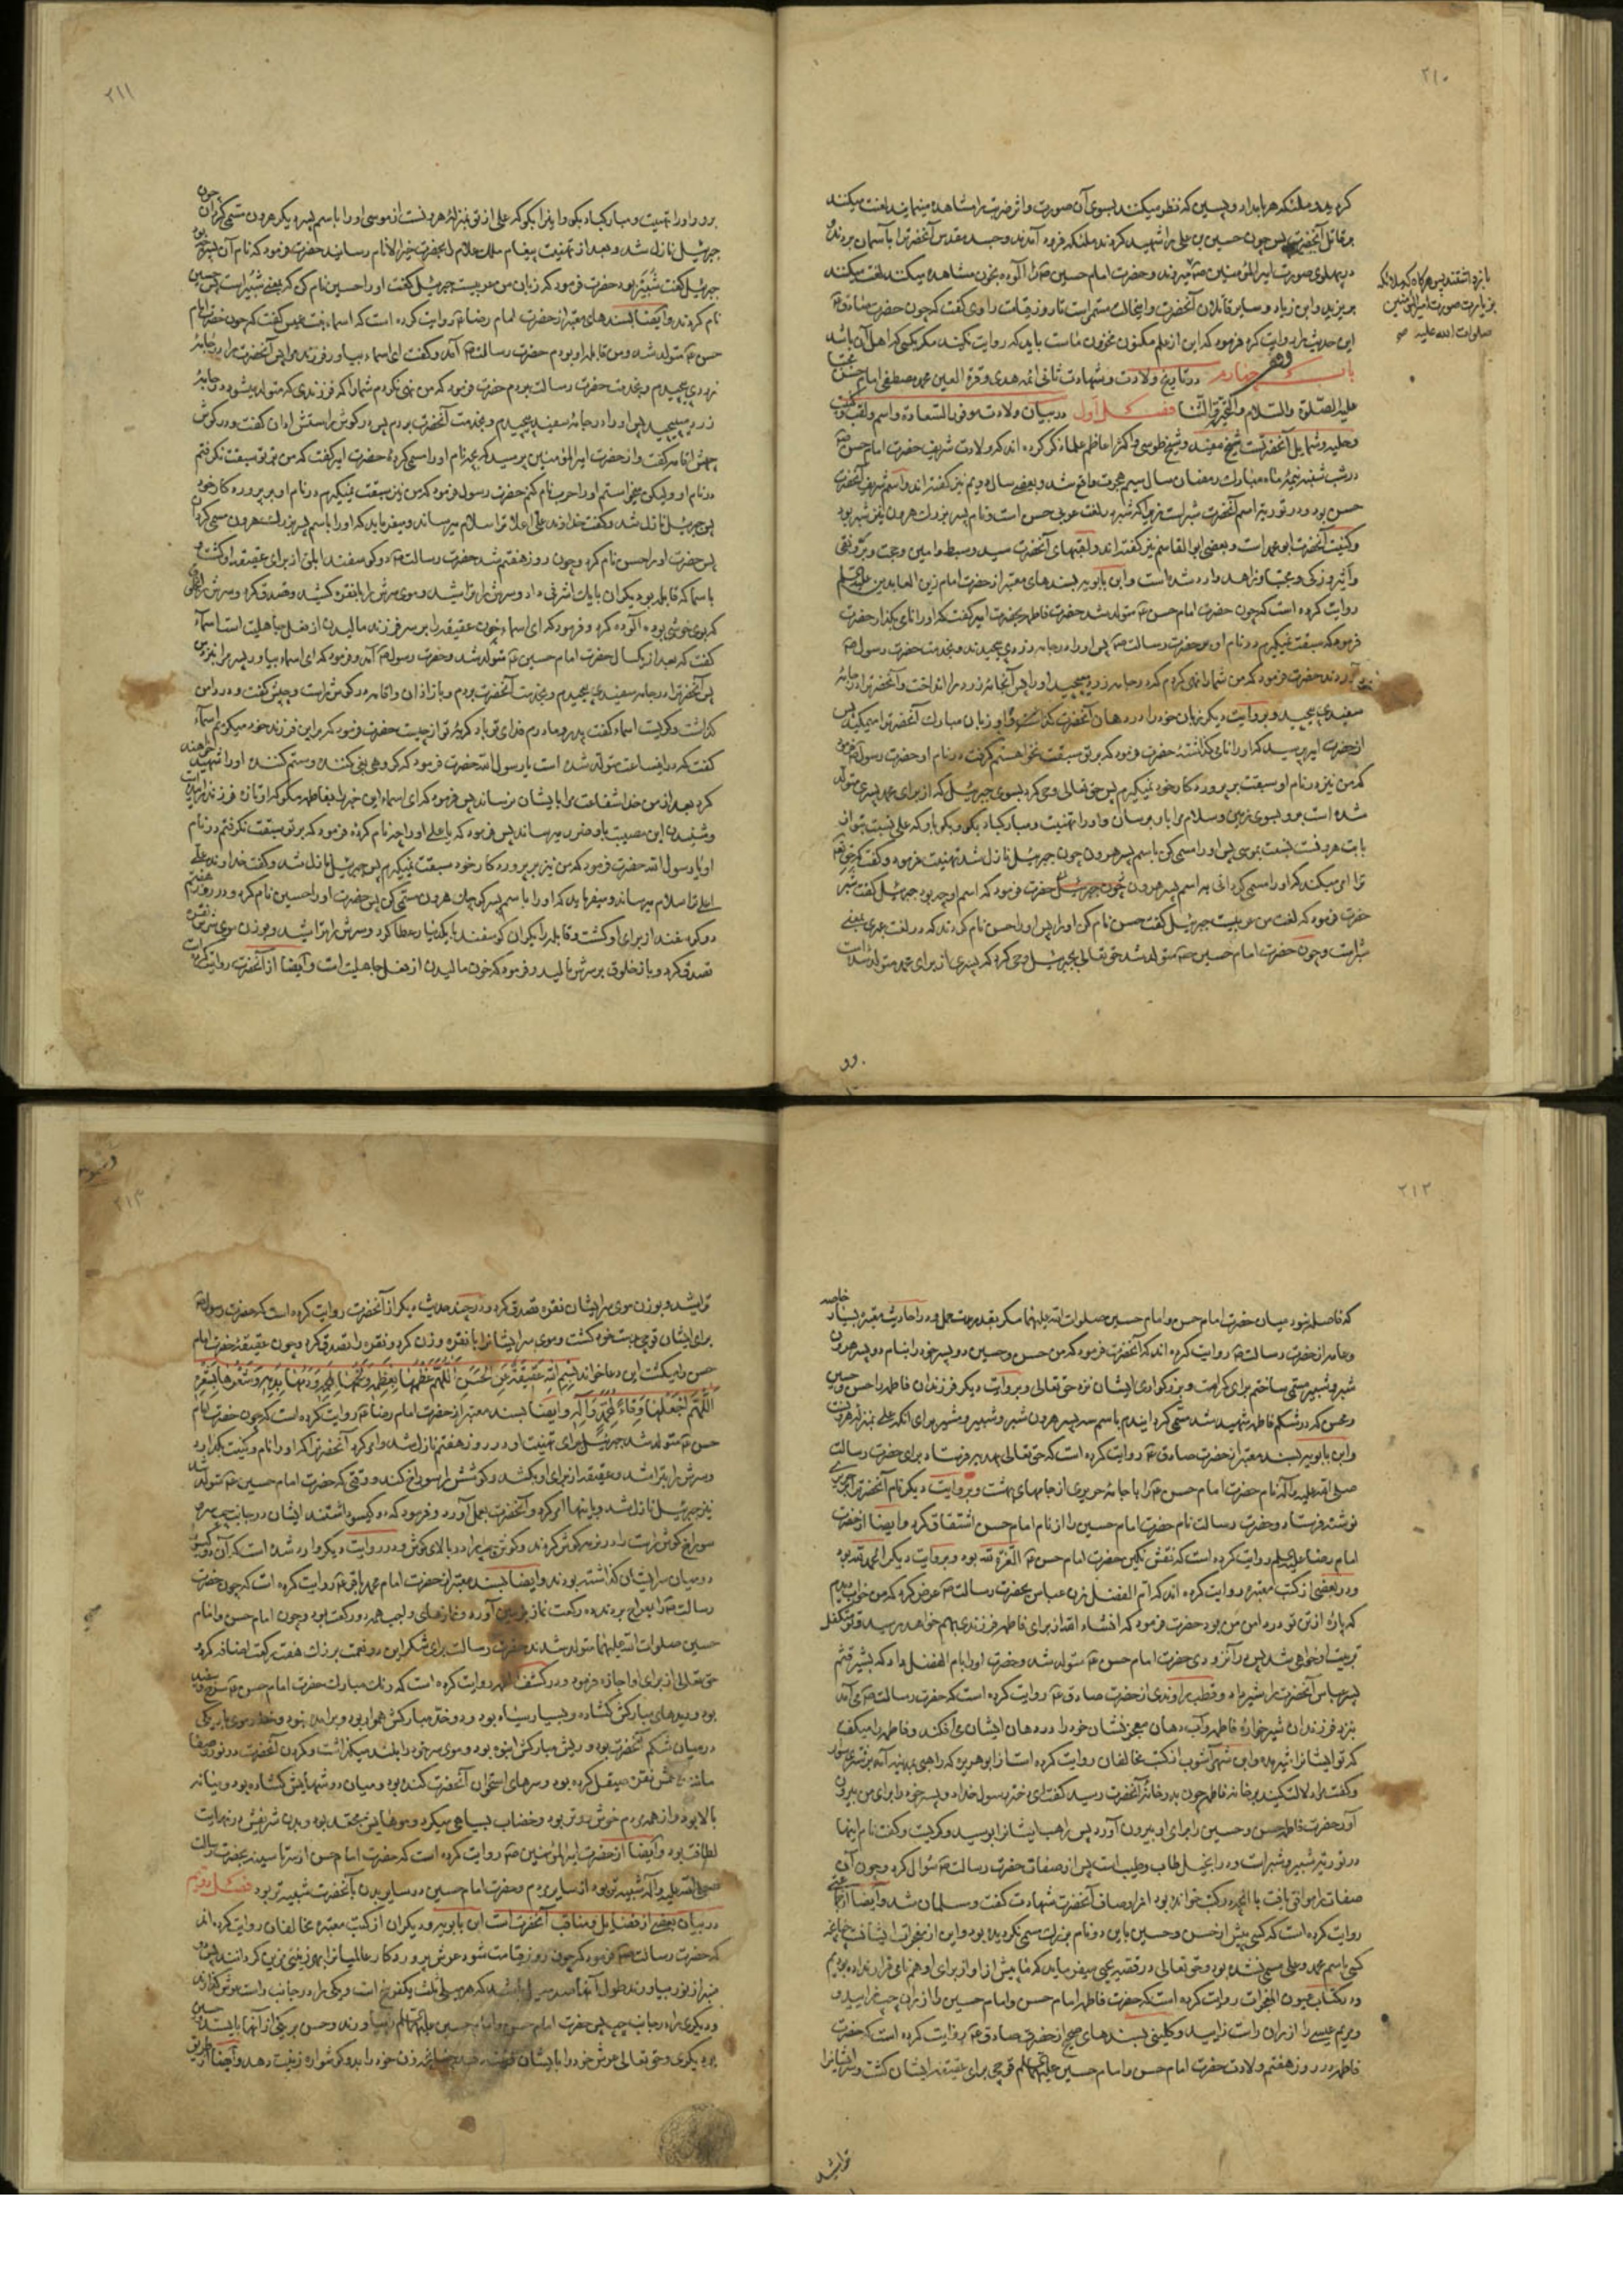 ۲۱۰
کردید و ملئکه هر بامداد و پسین که نظر میکنند بسوی آن صورت و اثر ضربت را مشاهده مینمایند لعنت میکنند
بر قاتل آنحضرت پس چون حسین بن علی را شهید کردند ملئکه فرود آمدند و جسد مقدس آنحضرت را بآسمان بردند و
در پهلوی صورت امیرالمؤمنین ع و حضرت امام حسین ع را آلوده بخون مشاهده میکنند لعنت میکنند
بر یزید و ابن زیاد و سایر قاتلان آنحضرت و این حالت مستمر است تا روز قیامت راوی گفت که چون حضرت صادق ع
این حدیث را روایت کرد فرمود که این از علم مکنون مخزون ماست باید که روایت نکنید مگر بکسی که اهل آن باشد
باب چهارم در تاریخ ولادت و شهادت ثانی ائمه هدی و قرة العین محمد مصطفی امام حسن مجتبی
علیه الصلوة والسلام والتحیة والثنا فصل اول در بیان ولادت موفور السعادة و اسم و لقب و کنیت
و حلیه و شمایل آنحضرت شیخ مفید و شیخ طوسی و اکثر اعاظم علما ذکر کرده اند که ولادت شریف حضرت امام حسن ع
در شب سه شنبه نیمه ماه مبارک رمضان سال سیم هجرت واقع شد و بعضی سال دویم نیز گفته اند و اسم شریف آنحضرت
حسن بود و در توریة اسم آنحضرت شبر است زیرا که شبر در لغت عبری حسن است و نام پسر بزرگ هرون نیز شبر بود
و کنیت آنحضرت ابو محمد است و بعضی ابو القاسم نیز گفته اند و لقبهای آنحضرت سید و سبط و امین و حجت و بر و تقی
و اثیر و زکی و مجتبی و زاهد وارد شده است و ابن بابویه بسندهای معتبر از حضرت امام زین العابدین علیه السلام
روایت کرده است که چون حضرت امام حسن ع متولد شد حضرت فاطمه بحضرت امیر گفت که او را نامی بگذار حضرت
فرمود که سبقت نمیگیرم در نام او بر حضرت رسالت ص پس او را در جامه زردی پیچیدند و بخدمت حضرت رسول ص
آوردند حضرت فرمود که من شما را نهی کردم که در جامه زرد مپیچید او را پس آنجامه زرد را انداخت و آنحضرت را در جامه
سفیدی پیچید و بروایت دیگر زبان خود را در دهان آنحضرت گذاشت و او زبان مبارک آنحضرت را میمکید پس
از حضرت امیر پرسید که او را نامی گذاشتۀ حضرت فرمود که بر تو سبقت نخواهیم گرفت در نام او حضرت رسول ص فرمود
که من نیز در نام او سبقت بر پروردگار خود نمیگیرم پس حق تعالی وحی کرد بسوی جبرئیل که از برای محمد پسری متولد
شده است برو بسوی زمین و سلام مرا باو برسان و او را تهنیت و مبارکباد بگو و بگو باو که علی نسبت بتو از
بابت هرونست نسبت بموسی پس او را مسمی کن باسم پسر هرون چون جبرئیل نازل شد تهنیت فرمود و گفت که حق تعالی
ترا امر میکند که او را مسمی گردانی به اسم پسر هرون حضرت فرمود که اسم او چه بود جبرئیل گفت شبر
حضرت فرمود که لغت من عربیست جبرئیل گفت حسن نام کن او را پس او را حسن نام کردند که در لغت عبری بمعنی
شبر است و چون حضرت امام حسین ع متولد شد حق تعالی بجبرئیل وحی کرد که پسری از برای محمد متولد شده است
صلوات الله علیه
برو
۲۱۱
برو او را تهنیت و مبارکباد بگو و او را بگو که علی از تو بمنزلۀ هرونست از موسی او را باسم پسر دیگر هرون مسمی گردان چون
جبرئیل نازل شد و بعد از تهنیت پیغام ملک علام را بحضرت خیر الانام رسانید حضرت فرمود که نام آن پسر چه بود
جبرئیل گفت شبیر بود حضرت فرمود که زبان من عربیست جبرئیل گفت او را حسین نام کن که بمعنی شبیر است پس حسین
نام کردند و ایضا بسندهای معتبر از حضرت امام رضا ع روایت کرده است که اسماء بنت عمیس گفت که چون حضرت امام
حسن ع متولد شد و من قابله او بودم حضرت رسالت ص آمد و گفت ای اسماء بیاور فرزند مرا پس آنحضرت را در جامۀ
زردی پیچیدم و بخدمت حضرت رسالت بردم حضرت فرمود که من نهی نکردم شما را که فرزندی که متولد میشود در جامۀ
زرد مپیچید پس او را در جامۀ سفید پیچیدم و بخدمت آنحضرت بردم پس در گوش راستش اذان گفت و در گوش
چپش اقامه گفت و از حضرت امیرالمؤمنین پرسید که بچه نام او را مسمی کردۀ حضرت امیر گفت که من بر تو سبقت نگرفتم
در نام او ولیکن میخواستم او را حرب نام کنم حضرت رسول فرمود که من نیز سبقت نمیگیرم در نام او بر پروردگار خود
پس جبرئیل نازل شد و گفت خداوند علی اعلا ترا سلام میرساند و میفرماید که او را باسم پسر بزرگ هرون مسمی گردان
پس حضرت او را حسن نام کرد و چون روز هفتم شد حضرت رسالت ص دو گوسفند ابلق از برای عقیقه او کشت و
با اسما که قابله بود یک ران با یک اشرفی داد و سرش را تراشید و موی سرش را با نقره کشید و تصدق کرد و سرش را بخلوق
که بوی خوشی بود آلوده کرد و فرمود که ای اسماء خون عقیقه را بر سر فرزند مالیدن از فعل جاهلیت است اسماء
گفت که بعد از یکسال حضرت امام حسین ع متولد شد و حضرت رسول ص آمد و فرمود که ای اسماء بیاور پسر مرا نزد من
پس آنحضرت را در جامه سفیدی پیچیدم و بخدمت آنحضرت بردم و باز اذان و اقامه در گوش راست و چپش گفت و در دامن
گذاشت و گریست اسماء گفت پدر و مادرم فدای تو باد گریۀ تو از چیست حضرت فرمود که بر این فرزند خود میگریم اسماء
گفت که در اینساعت متولد شده است یا رسول الله حضرت فرمود که گروهی بغی کننده و ستم کننده او را شهید خواهند
کرد بعد از من خدا شفاعت مرا بایشان نرساند پس فرمود که ای اسماء این خبر را بفاطمه مگو که او تازه فرزند زائیده است
و شنیدن این مصیبت باو ضرر میرساند پس فرمود که یا علی او را چه نام کردۀ فرمود که بر تو سبقت نگرفتم در نام
او یا رسول الله حضرت فرمود که من نیز بر پروردگار خود سبقت نمیگیرم پس جبرئیل نازل شد و گفت خداوند علی
اعلی ترا سلام میرساند و میفرماید که او را باسم پسر کوچک هرون مسمی کن پس حضرت او را حسین نام کرد و در روز هفتم
دو گوسفند از برای او کشت و قابله را یکران گوسفند با یکدینار عطا کرد و سرش را تراشید و بوزن موی سرش نقره
تصدق کرد و باز خلوق بر سرش مالید و فرمود که خون مالیدن از فعل جاهلیت است و ایضا از آنحضرت روایت کرده است
۲۱۲
که فاصله نبود میان حضرت امام حسن و امام حسین صلوات الله علیهما مگر بقدر مدت حمل و در احادیث معتبره بسیار خاصه
و عامه از حضرت رسالت ص روایت کرده اند که آنحضرت فرمود که من حسن و حسین دو پسر خود را بنام دو پسر هرون
شبر و شبیر مسمی ساختم برای کرامت و بزرگواری ایشان نزد حق تعالی و بروایت دیگر فرزندان فاطمه را حسن و حسین
و محسن که در شکم فاطمه شهید شد مسمی گردانیدم باسم سه پسر هرون شبر و شبیر و مشبر برای آنکه علی بمنزله هرونست
و ابن بابویه بسند معتبر از حضرت صادق ع روایت کرده است که حق تعالی هدیه فرستاد برای حضرت رسالت
صلی الله علیه و آله نام حضرت امام حسن ع را با جامه حریری از جامهای بهشت و بروایت دیگر نام آنحضرت را بر حریری
نوشته فرستاد و حضرت رسالت نام حضرت امام حسین را از نام امام حسن اشتقاق کرد و ایضا از حضرت
امام رضا علیه السلام روایت کرده است که نقش نگین حضرت امام حسن ع العزة لله بود و بروایت دیگر الحمد لله بود
و در بعضی از کتب معتبره روایت کرده اند که ام الفضل زن عباس بحضرت رسالت ص عرض کرد که من خواب دیدم
که پارۀ از تن تو در دامن من بود حضرت فرمود که انشاء الله از برای فاطمه فرزندی بهم خواهد رسید و تو متکفل
تربیت او خواهی شد پس در آنزودی حضرت امام حسن ع متولد شد و حضرت او را بام الفضل داد که بشیر قثم
پسر عباس آنحضرت را شیر داد و قطب راوندی از حضرت صادق ع روایت کرده است که حضرت رسالت ص می آمد
بنزد فرزندان شیر خوارۀ فاطمه و آب دهان معجز نشان خود را در دهان ایشان می افکند و فاطمه را میگفت
که تو ایشانرا شیر مده و ابن شهرآشوب از کتب مخالفان روایت کرده است از ابو هریره که راهبی بمدینه آمد بر شتری سوار
و گفت مرا دلالت کنید بر خانه فاطمه چون بدر خانۀ آنحضرت رسید گفت ای دختر رسول خدا دو پسر خود را برای من بیرون
آور حضرت فاطمه حسن و حسین را برای او بیرون آورد پس راهب ایشانرا بوسید و گریست و گفت نام اینها
در توریة شبیر و شبر است و در انجیل طاب و طیب است پس از صفات حضرت رسالت ص سوال کرد و چون آن
صفات را موافق یافت با آنچه در کتب خوانده بود شهادت گفت و مسلمان شد و ایضا
روایت کرده است که کسی پیش از حسن و حسین باین دو نام بزرگ مسمی نگردیده بود و این از معجزات ایشانست چنانچه
کسی باسم محمد و علی مسمی نشده بود و حق تعالی در قصه یحیی میفرماید که ما پیش از او از برای او همنامی قرار نداده بودیم
و در کتاب عیون المعجزات روایت کرده است که حضرت فاطمه امام حسن و امام حسین را از ران چپ زایید و
و مریم عیسی را از ران راست زایید و کلینی بسندهای صحیح از حضرت صادق ع روایت کرده است که حضرت
فاطمه در روز هفتم ولادت حضرت امام حسن و امام حسین علیهما السلام قوچی برای عقیقه ایشان کشت و سر ایشانرا
تراشید
۲۱۳
تراشید و بوزن موی سر ایشان نقره تصدق کرد و در چند حدیث دیگر از آنحضرت روایت کرده است که حضرت رسول ص
برای ایشان قوچی بدست خود کشت و موی سر ایشانرا با نقره وزن کرد و نقره را تصدق کرد و چون عقیقۀ حضرت امام
حسن را میکشت این دعا خواند بسم الله عقیقة عن الحسن اللهم عظمها بعظمه و لحمها بلحمه و دمها بدمه و شعرها بشعره
اللهم اجعلها وقاء لمحمد و آله و ایضا بسند معتبر از حضرت امام رضا ع روایت کرده است که چون حضرت امام
حسن ع متولد شد جبرئیل برای تهنیت او در روز هفتم نازل شد و امر کرد آنحضرت را که او را نام و کنیت بگذارد
و سرش را بتراشد و عقیقه از برای او بکشد و گوشش را سوراخ کند و وقتی که حضرت امام حسین ع متولد شد
نیز جبرئیل نازل شد و باینها امر کرد و آنحضرت بعمل آورد و فرمود که دو گیسو داشتند ایشان در جانب چپ سر و
سوراخ گوش راست را در نرمه گوش کردند و گوش چپ را در بالای گوش و در روایت دیگر وارد شده است که آن دو گیسو
در میان سر ایشان گذاشته بودند و ایضا بسند معتبر از حضرت امام محمد باقر ع روایت کرده است که چون حضرت
رسالت ص را بمعراج بردند ده رکعت نماز بزمین آورد و نمازهای واجب همه دو رکعت بود و چون امام حسن و امام
حسین صلوات الله علیهما متولد شدند حضرت رسالت برای شکر این دو نعمت بزرگ هفت رکعت اضافه کرد و
حق تعالی از برای او اجازه فرمود و در کشف الغمه روایت کرده است که رنگ مبارک حضرت امام حسن ع سرخ و سفید
بود و دیدهای مبارکش گشاده و بسیار سیاه بود و دو خد مبارکش هموار بود و برآمده نبود و خط موی باریکی
در میان شکم آنحضرت بود و ریش مبارکش انبوه بود و موی سر خود را بلند میگذاشت و گردن آنحضرت در نور و صفا
مانند نقره صیقل کرده بود و سرهای استخوان آنحضرت گنده بود و میان دوشهایش گشاده بود و میانه
بالا بود و از همه مردم خوش روتر بود و خضاب بسیاهی میکرد و موهایش مجعد بود و بدن شریفش در نهایت
لطافت بود و ایضا از حضرت امیرالمؤمنین ع روایت کرده است که حضرت امام حسن از سر تا سینه بحضرت رسالت
صلی الله علیه و آله شبیه تر بود از سایر مردم و حضرت امام حسین در سایر بدن بآنحضرت شبیه تر بود فصل دویم
در بیان بعضی از فضایل و مناقب آنحضرت است ابن بابویه و دیگران از کتب معتبره مخالفان روایت کرده اند
که حضرت رسالت ص فرمود که چون روز قیامت شود عرش پروردگار عالمیانرا بهر زینتی مزین گردانند پس دو
منبر از نور بیاورند که طول آنها صد میل باشد و یکی را در جانب راست عرش گذارند
و دیگری را در جانب چپ پس حضرت امام حسن و امام حسین علیهما السلام بیاورند و حسن بر یکی از آنها بایستد و حسین
بر دیگری و حق تعالی عرش خود را بایشان زینت دهد چنانچه زن خود را بدو گوشواره زینت دهد و ایضا از طریق